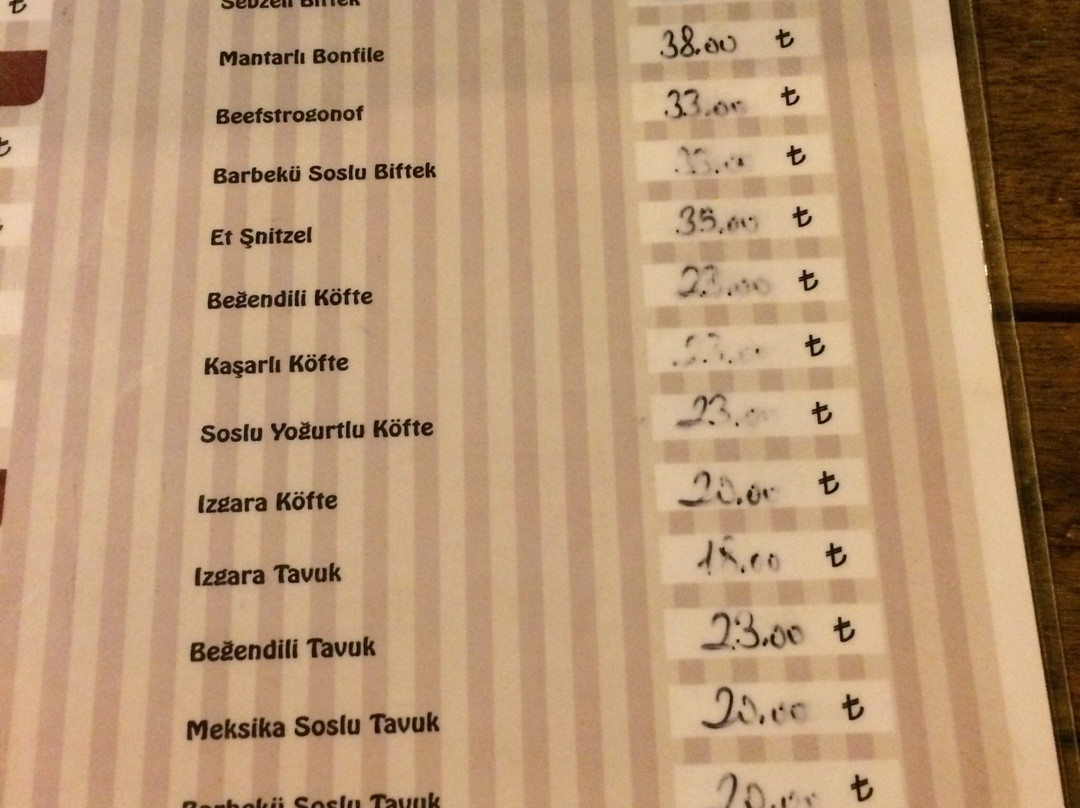 ₺
Sebzeli Biftek
Mantarlı Bonfile 38.00 ₺
Beefstrogonof 33.00 ₺
₺
Barbekü Soslu Biftek ₺
Et Şnitzel 35.00 ₺
Beğendili Köfte 23.00 ₺
Kaşarlı Köfte 23.00 ₺
Soslu Yoğurtlu Köfte 23.00 ₺
Izgara Köfte 20.00 ₺
Izgara Tavuk 18.00 ₺
Beğendili Tavuk 23.00 ₺
Meksika Soslu Tavuk 20.00 ₺
Barbekü Soslu Tavuk 20.00 ₺